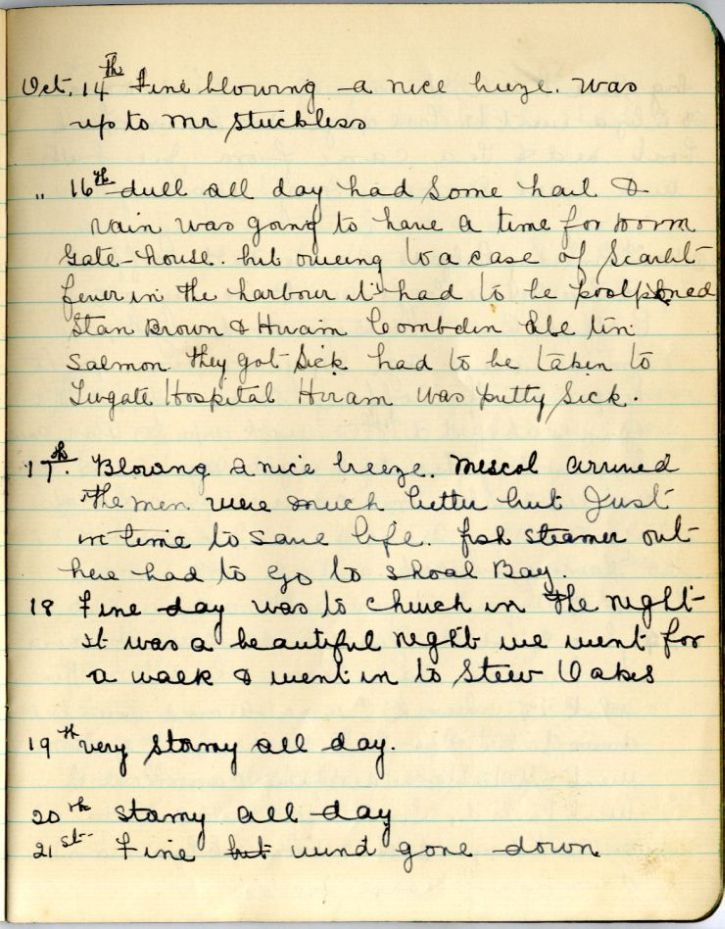 Oct. 14th Fine blowing a nice breeze. Was
up to Mr Stuckless
" 16th dull all day had some hail &
rain was going to have a time for
Gate-house. but oweing to a case of Scarlet
fever in the harbour it had to be
Stan Brown & Hiram Combden ate tin
Salmon they got sick had to be taken to
Twgate Hospital Hiram was pretty sick.
17th. Blowing a nice breeze. Mescol arrived
the men were much better but Just
in time to save life. fish steamer out
here had to go to Shoal Bay.
18 Fine day was to church in the night
it was a beautiful night we went for
a walk & went in to Stew Oakes
19th very stormy all day.
20th stormy all day
21st Fine but wind gone down